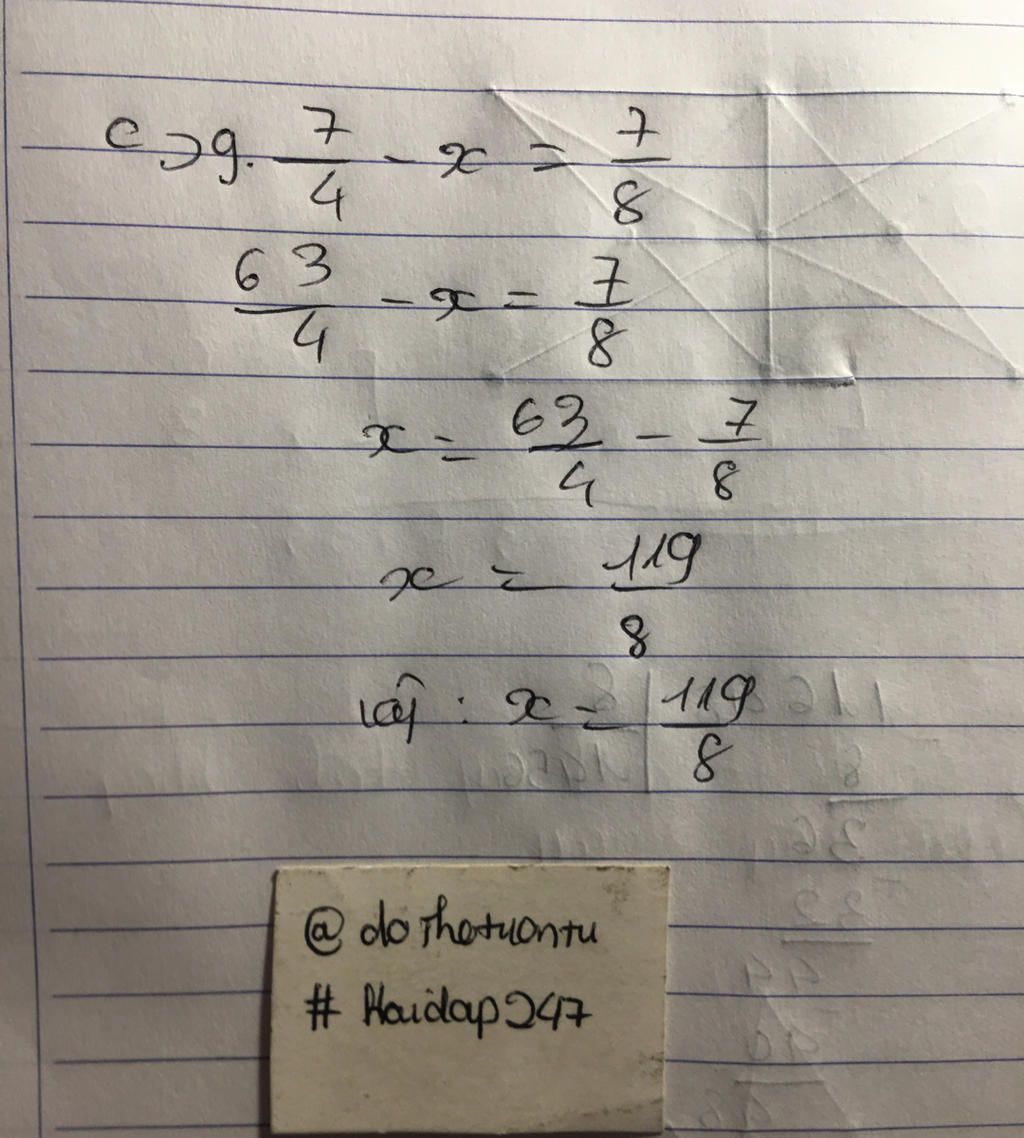 c > 9. 7/4 - x = 7/8
63/4 - x = 7/8
x = 63/4 - 7/8
x = 119/8
vậy : x = 119/8
@dothetuontu
# Haidap247